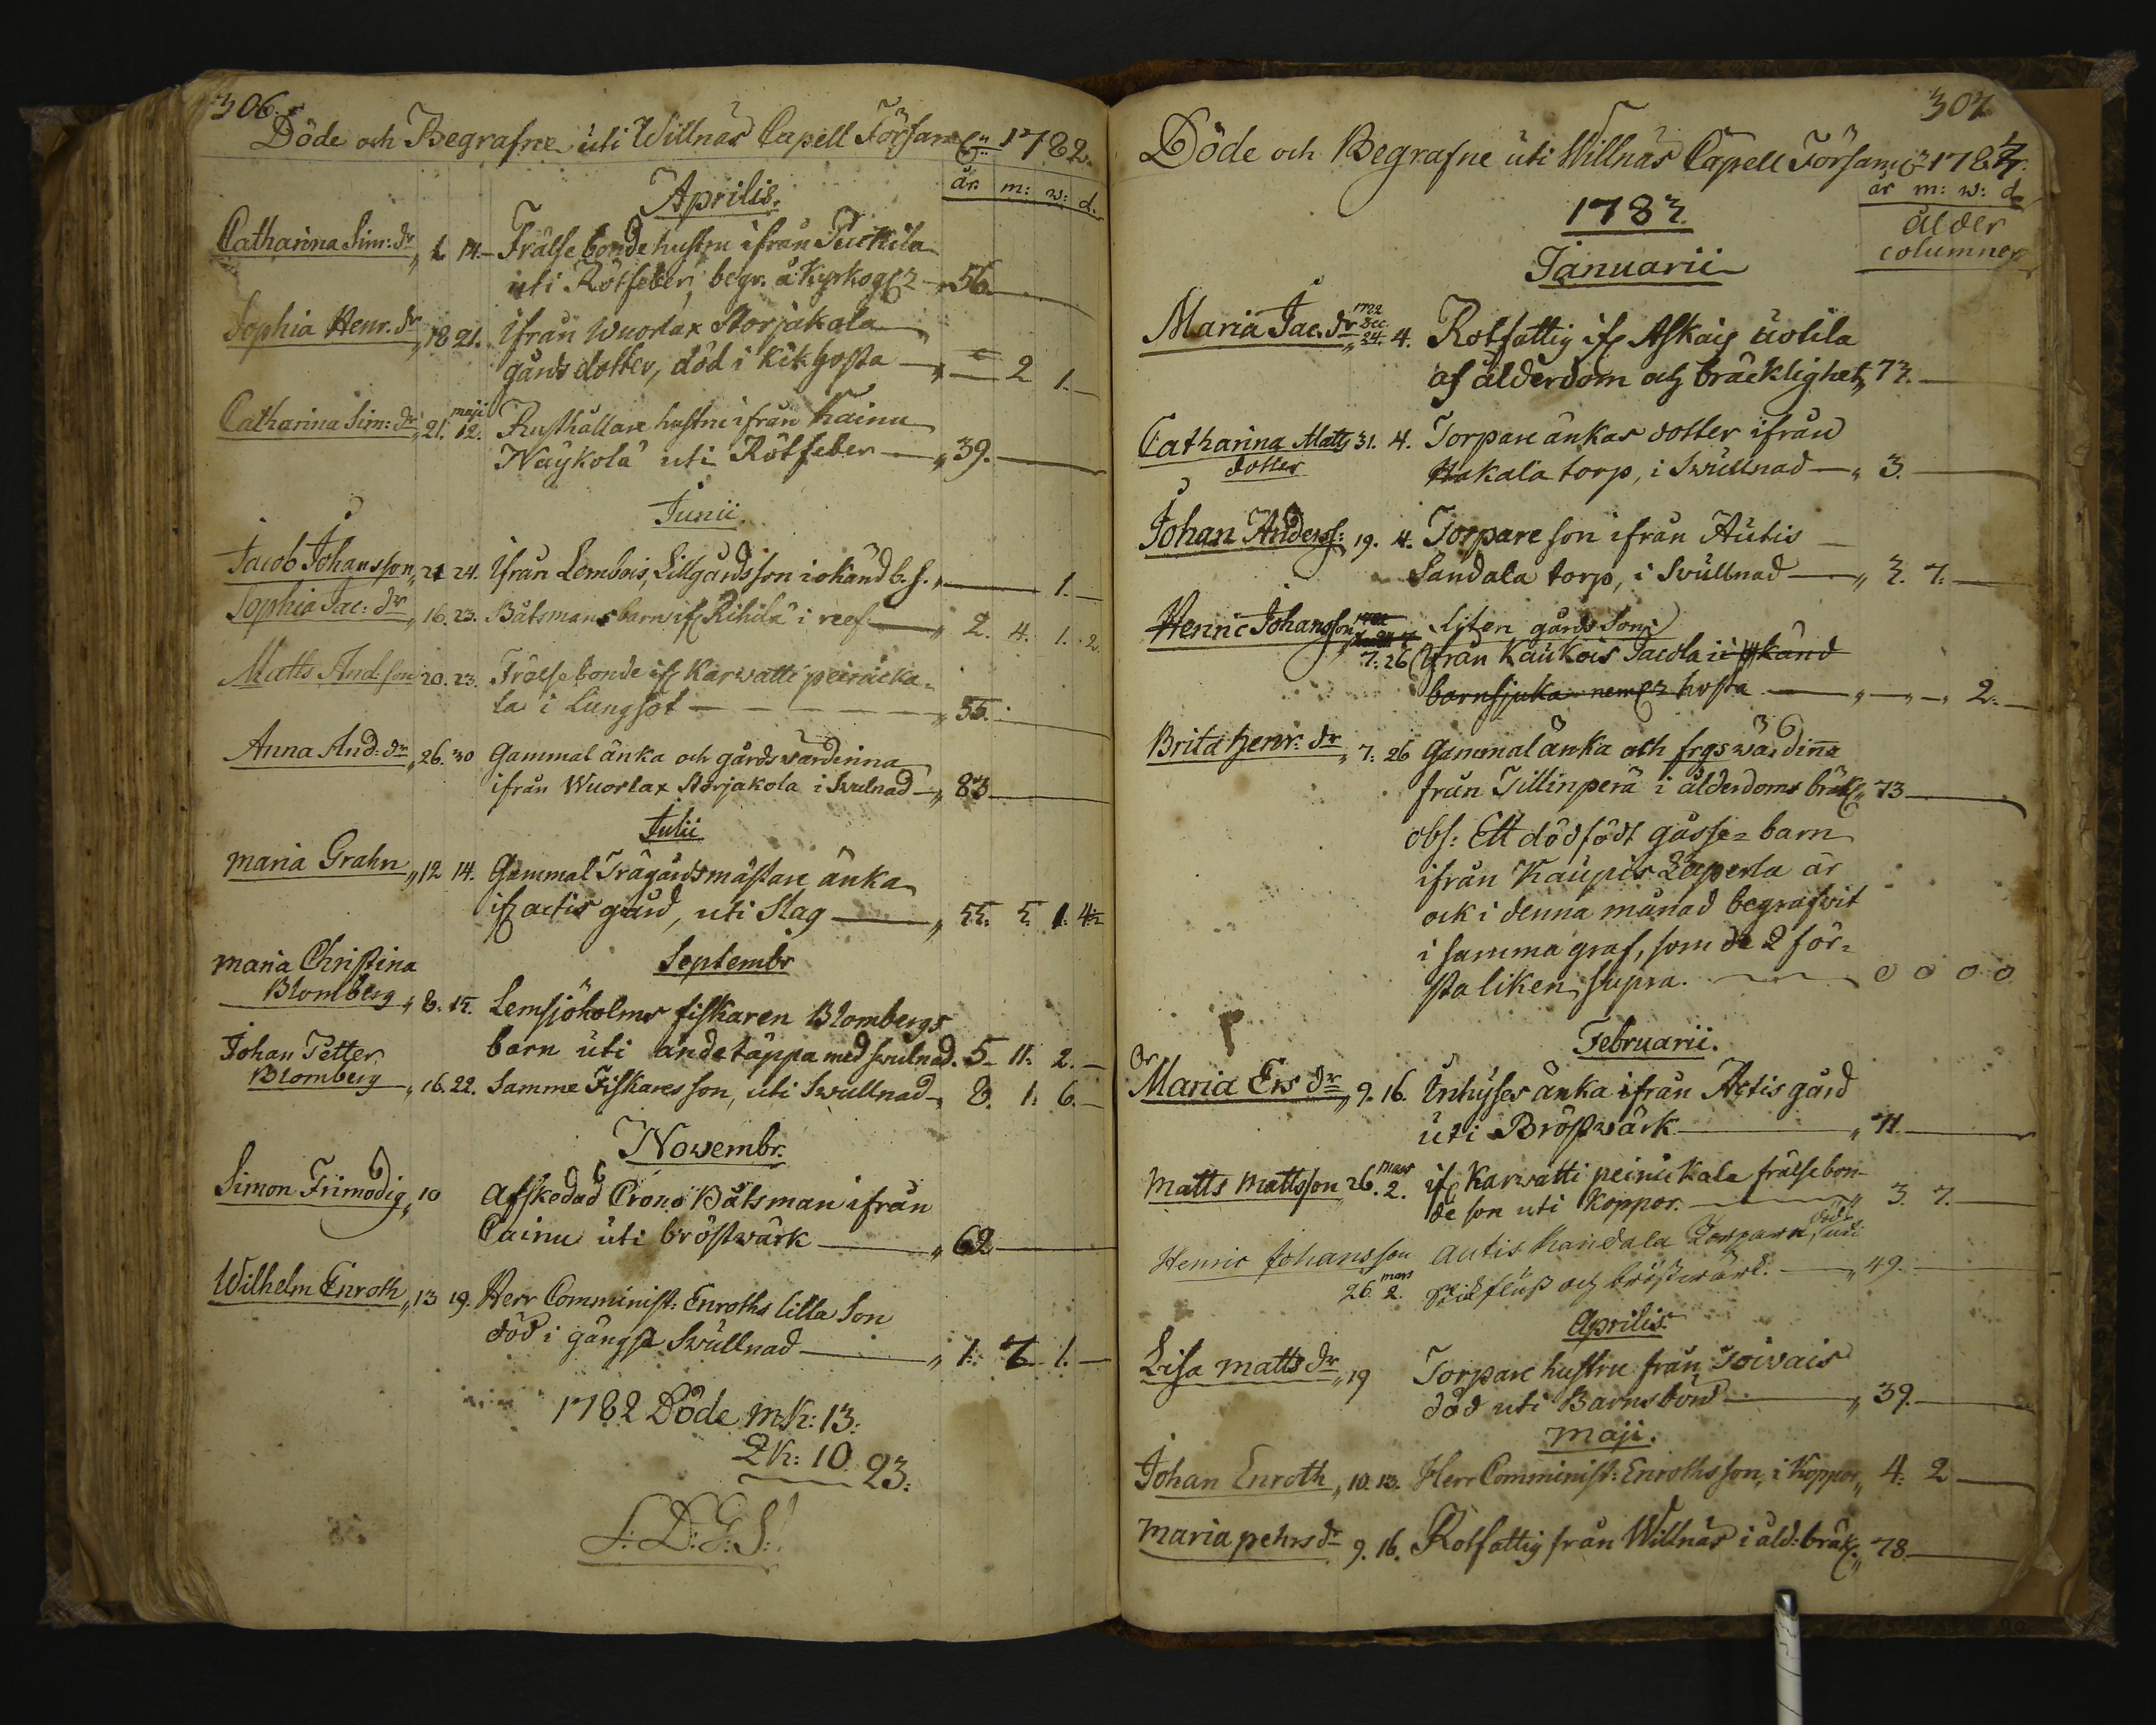 306.
Döde och Begrafne uti Willnäs Capell Församl:n 1782.
år m: w: d.
Aprilis.
Catharina Sim: dr „ 1. 14. Frälse bonde hustru ifrån Puckila
uti Rötfeber, begr. å Kyrkog: 56.
Sophia Henr. dr „ 18 21. ifrån Wuorlax Storjakola
gårds dotter, död i Kikhosta — „ — 2 1. —
maji
Catharina Sim: dr „ 21. 12. Rusthållare hustru ifrån Kainu
Näykola uti Rötfeber — „ 39.
Junii
Jacob Johansson „ 21 24. ifrån Lembois, Lillgårds son i okänd b. s. „ — 1. —
Sophia Jac: dr „ 16. 23. Båtsmans barn if Rihilä i reef — „ 2. 4. 1. 2.
Matts And: son 20. 23. Frälse bonde if Karwatti peiräcka-
la i Lungsot — „ 55.
Anna And: dr „ 26. 30 Gammal änka och gårdswärdinna
ifrån Wuorlax Storjakola i Swulnad — „ 83
Julii
Maria Grahn „ 12 14. Gammal Trägårdsmästare änka
if actis gård, uti Slag — „ 55. 5 1. 4.
Septembr
Maria Christina
Blomberg „ 8. 15. Lemsjöholms fiskaren Blombergs
barn uti andetäppa med swulnad. 5 11. 2. —
Johan Petter
Blomberg „ 16. 22. Samme Fiskares son, uti Swullnad „ 8. 1. 6. —
Novembr.
Simon Frimodig „ 10 Afskedad Crono Båtsman ifrån
Cainu uti bröstwärk — „ 62
Wilhelm Enroth „ 13 19. Herr Comminist: Enroths lilla Son
död i gångse Swullnad — „ 1. 7 1. —
1782 Döde MK: 13.
QK: 10. 23.
S: D: G: S!
307
Döde och Begrafne uti Willnäs Capell Församl: 1783.
år m: w: d
ålder
columner
1783.
Januarii
1782
Dec
Maria Jac. dr „ 24. 4. Rotfattig if Askais äotila
af ålderdom och bräcklighet „ 73.
Catharina Matts 31. 4. Torpare änkas dotter ifrån
dotter
Hakala torp, i Swullnad — „ 3.
Johan Anderss: 19. 4. Torpare son ifrån Autis
Sandala torp, i Swullnad — „ 3. 7. —
Henric Johansson Liten gårds Son
7. 26 ifrån Kaukois Jacola i okänd
barnsjuka hosta — „ — „ 2. —
Brita Henr: dr „ 7. 26 Gammal änka och frgswärdinna
från Tillinperä i ålderdoms bräk: 73
obs: Ett dödfödt gosse= barn
ifrån Kaupis är
ock i denna månad begrafwit
i samma graf, som de 2 för=
sta liken supra. — 0 0 0 0
Februarii.
Maria Ers dr „ 9. 16. Inhyses änka ifrån Actis gård
uti Bröstwärk — „ 71.
mars
Matts Mattsson „ 26. 2. if Karwatti peinickala frälsebon-
de son uti Koppor. — „ 3 7. —
Henric Johansson autis Kandala Torpare, död uti
mars
26. 2. fluss och bröstwärk. — „ 49.
Aprilis
Lisa Matts dr „ 19 Torpare hustru från Toivais
död uti Barnsbörd — „ 39.
Maji.
Johan Enroth „ 10. 13. Herr Comminist: Enroths son, i Koppor „ 4. 2 —
Maria pehrs dr 9. 16. Rotfattig från Willnäs i åld: bräk: „ 78.